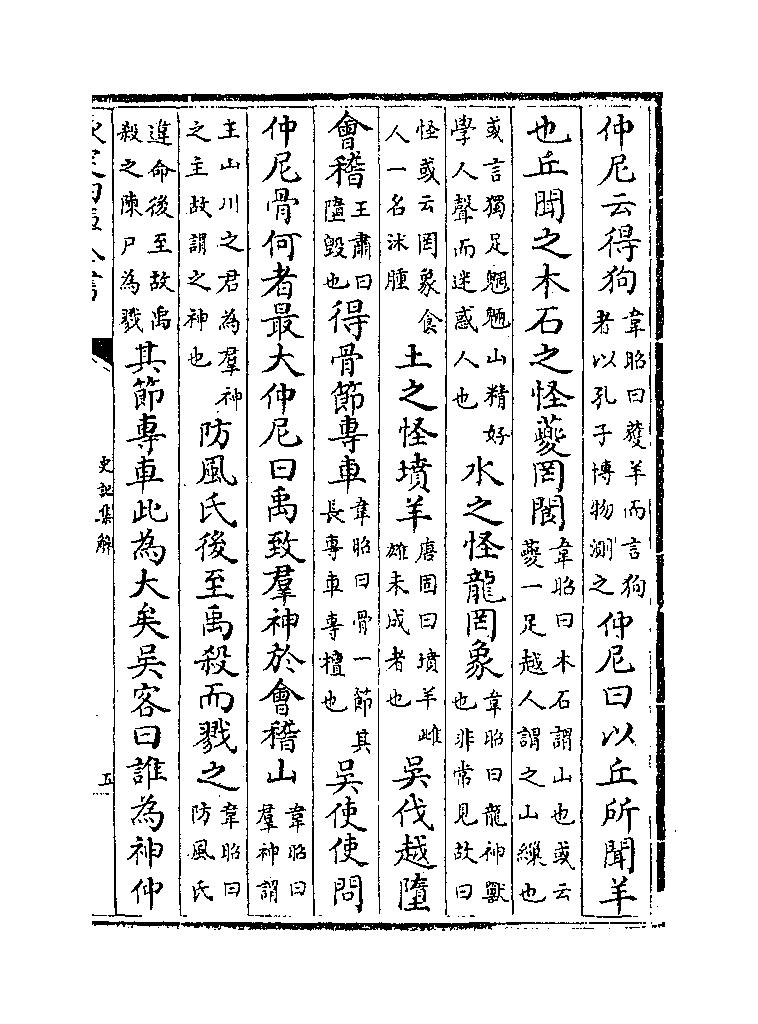 仲尼云得狗韋昭曰獲羊而言狗者以孔子博物測之仲尼曰以丘所聞羊
也丘聞之木石之怪夔罔閬韋昭曰木石謂山也或云夔一足越人謂之山繅也
或言獨足魍魎山精好學人聲而迷惑人也水之怪龍罔象韋昭曰龍神獸也非常見故曰
怪或云罔象食人一名沐腫土之怪墳羊唐固曰墳羊雌雄未成者也吳伐越墮
會稽王肅曰墮毀也得骨節專車韋昭曰骨一節其長專車專擅也吳使使問
仲尼骨何者最大仲尼曰禹致羣神於會稽山韋昭曰羣神謂
主山川之君為羣神之主故謂之神也防風氏後至禹殺而戮之韋昭曰防風氏
違命後至故禹殺之陳尸為戮其節專車此為大矣吳客曰誰為神仲
史記集解
五